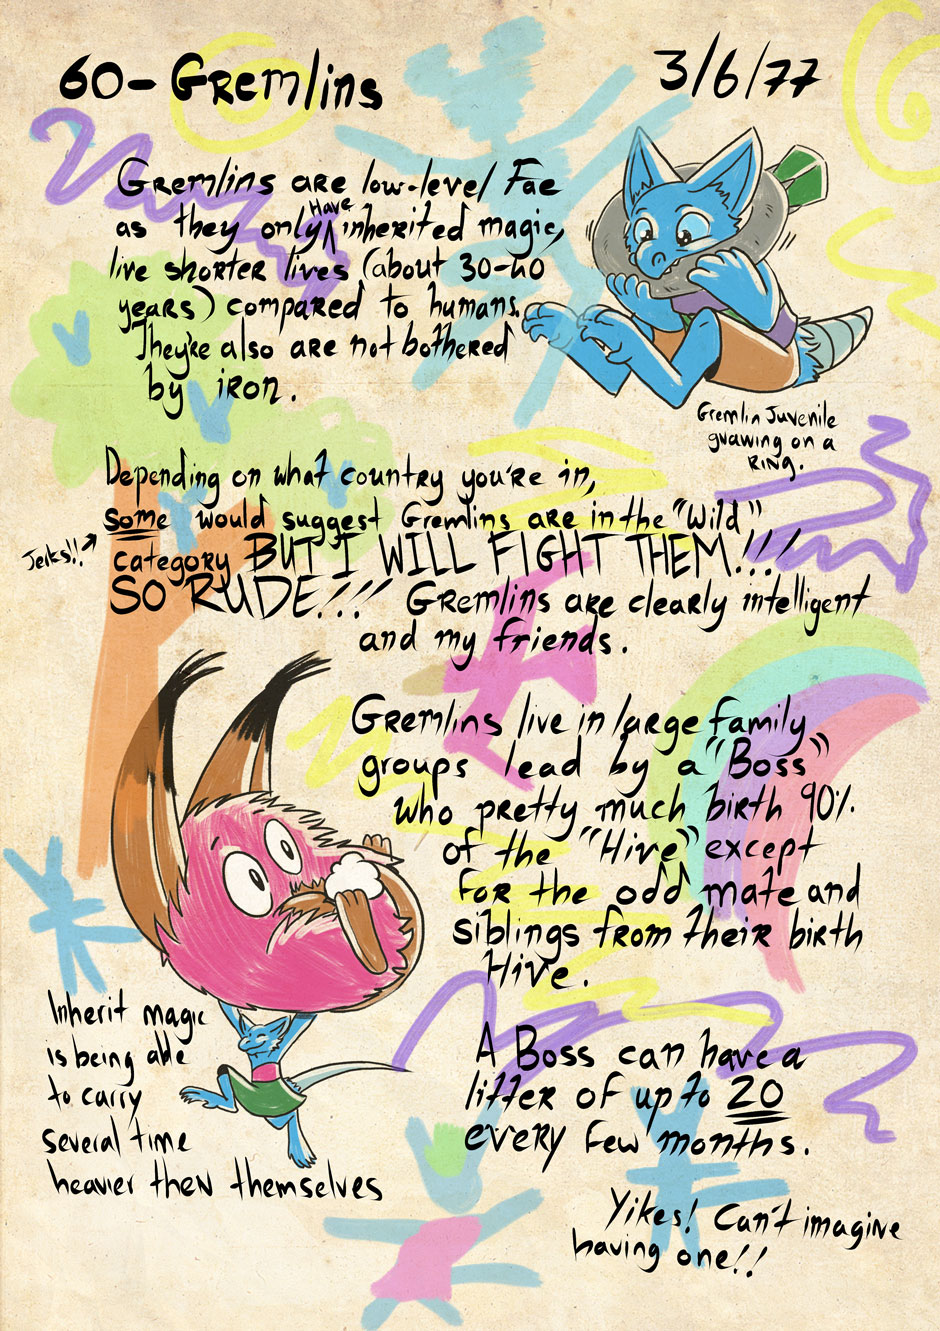 60-Gremlins
3/6/77
Gremlins are low-level Fae
as they only Have inherited magic,
live shorter lives (about 30-40
years) compared to humans.
They're also are not bothered
by iron.
Gremlin Juvenile
gnawing on a
RING.
Depending on what country you're in,
some would suggest Gremlins are in the "Wild"
Jerks!!
category BUT I WILL FIGHT THEM!!!
SO RUDE!!! Gremlins are clearly intelligent
and my friends.
Gremlins live in large family
groups lead by a "Boss"
who pretty much birth 90%
of the "Hive" except
for the odd mate and
siblings from their birth
Hive.
Inherit magic
is being able
to carry
several time
heavier then themselves
A Boss can have a
litter of up to 20
every few months.
Yikes! Can't imagine
having one!!